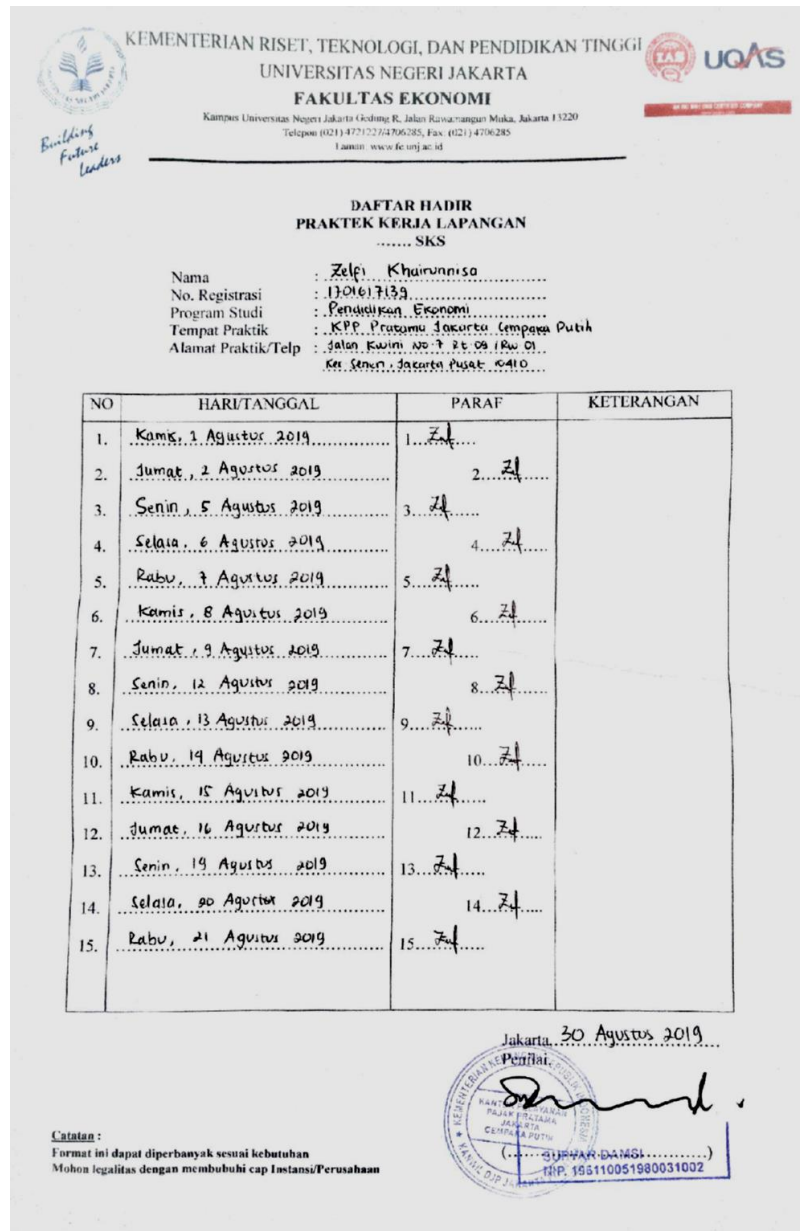 KEMENTERIAN RISET, TEKNOLOGI, DAN PENDIDIKAN TINGGI
UNIVERSITAS NEGERI JAKARTA
FAKULTAS EKONOMI
Kampus Universitas Negeri Jakarta Gedung R, Jalan Rawamangun Muka, Jakarta 13220
Telepon (021) 4721227/4706285, Fax: (021) 4706285
Laman: www.fe.unj.ac.id
Building
Future
Leaders
UQAS
DAFTAR HADIR
PRAKTEK KERJA LAPANGAN
....... SKS
Nama : Zelpi Khairunnisa
No. Registrasi : 1701617139
Program Studi : Pendidikan Ekonomi
Tempat Praktik : KPP Pratama Jakarta Cempaka Putih
Alamat Praktik/Telp : Jalan Kwini No. 7 Rt 09 / Rw 01
Kec. Senen, Jakarta Pusat 10410
NO HARI/TANGGAL PARAF KETERANGAN
1. Kamis, 1 Agustus 2019 1.
2. Jumat, 2 Agustus 2019 2.
3. Senin, 5 Agustus 2019 3.
4. Selasa, 6 Agustus 2019 4.
5. Rabu, 7 Agustus 2019 5.
6. Kamis, 8 Agustus 2019 6.
7. Jumat, 9 Agustus 2019 7.
8. Senin, 12 Agustus 2019 8.
9. Selasa, 13 Agustus 2019 9.
10. Rabu, 14 Agustus 2019 10.
11. Kamis, 15 Agustus 2019 11.
12. Jumat, 16 Agustus 2019 12.
13. Senin, 19 Agustus 2019 13.
14. Selasa, 20 Agustus 2019 14.
15. Rabu, 21 Agustus 2019 15.
Jakarta, 30 Agustus 2019
Penilai,
KANTOR PELAYANAN
PAJAK PRATAMA
JAKARTA
CEMPAKA PUTIH
(....................)
SURYAR DAMSI
NIP. 196110051980031002
Catatan :
Format ini dapat diperbanyak sesuai kebutuhan
Mohon legalitas dengan membubuhi cap Instansi/Perusahaan